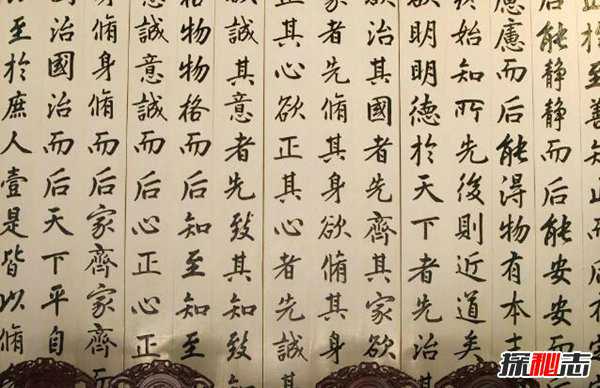 止於至善知止而后有定
后能静静而后能安安而
慮慮而后能得物有本末
終始知所先後則近道矣
欲明明德於天下者先治其
欲治其國者先齊其家欲
家者先脩其身欲脩其身
正其心欲正其心者先誠其
誠其意者先致其知致
格物物格而后知至知至
意誠意誠而后心正心正
身脩身脩而后家齊家齊而
治國治而后天下平自
至於庶人壹是皆以脩
探秘志